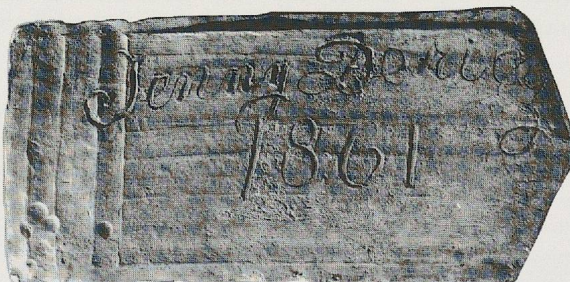 Jenny Doriag
1861